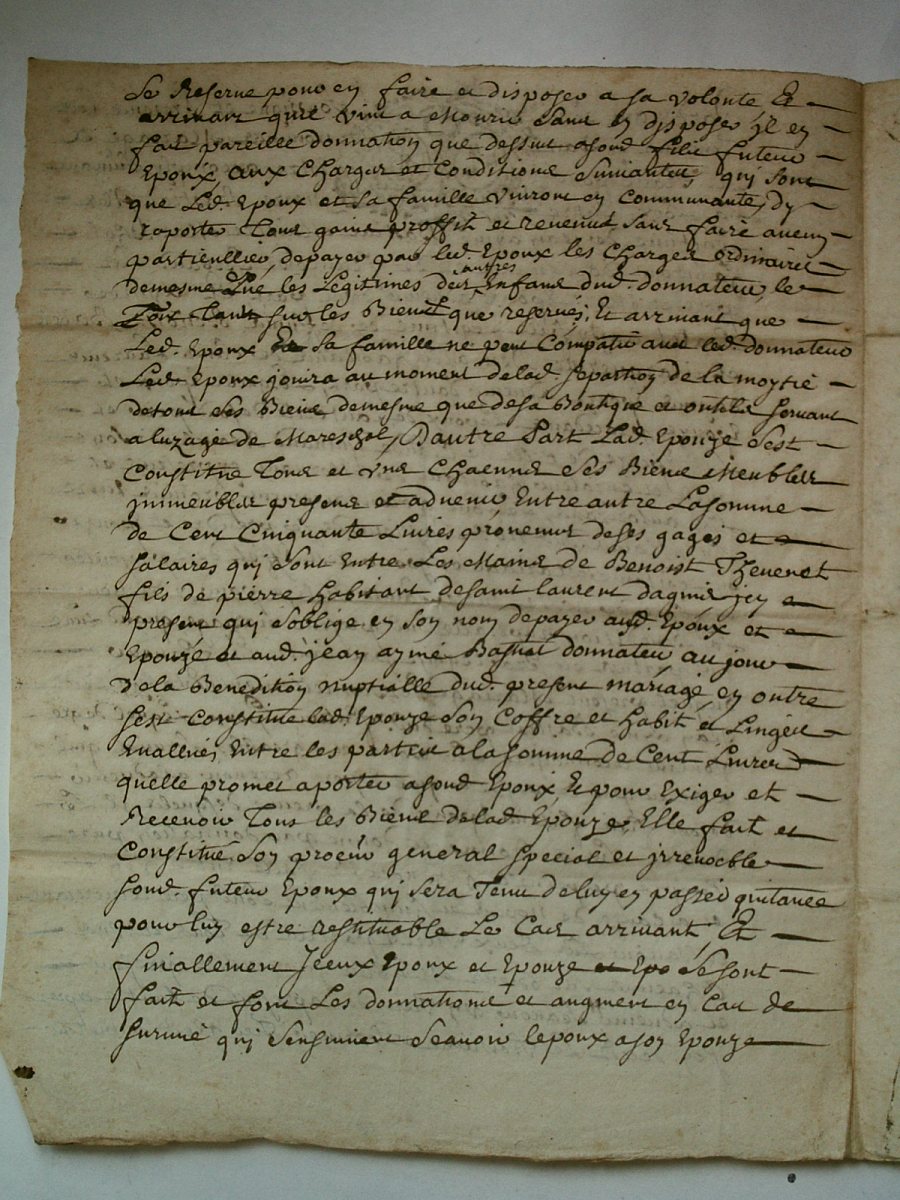 se Reserve pour en faire et disposer a sa volonte Et
arrivant quil vint a Mourir sans en disposer jl en
fait pareille donnation que dessus asond. filz futeur
Epoux, aux Charges et Conditions Suivantes, qui sont
que Led. Epoux et sa famille vivront en Communante, dy
raporter Tous gains proffits et revenus sans faire aucun
particullier, depayer par led. Epoux les Charges ordinaires
demesme que les Légitimes des autres Enfans dud. donnateur, le
Tout Tant sur les Biens que reservés, Et arrivant que
Led. Epoux Et sa famille ne peut Compatir avec led. donnateur
Led. Epoux jouira au moment delad. separation de la moytié
detous ses Biens demesme que desa Boutique et outils servant
a luzage de Mareschal, Dautre Part Lad. Epouze sest
Constitué Tous et vns Chacuns ses Biens Meubles
jmmeubles presens et advenir Entre autre Lasomme
de Cent Cinquante Livres provenues deses gages et
salaires qui sont Entre Les Mains de Benoist Thevenet
fils de pierre habitant desaint laurent dagnis jcy
present qui soblige en son nom depayer aud. Epoux et
Epouze et aud. jean aymé donnateur au jour
dela Benediction nuptialle dud. present mariage en outre
sest Constitué lad. Epouze son Coffre et habit et Linges
Evallués Entre les parties a lasomme de Cent Livres
quelle promet aporter asond Epoux Et pour Exiger et
Recevoir Tous les Biens delad. Epouze, Elle fait et
Constitue son procur general special et jrrevocble
sond. futeur Epoux qui sera Tenu deluy en passer quitance
pour luy estre restituable Le Cas arrivant, Et
finallement Jceux Epoux et Epouze et Epo se sont
fait et font Les donnations et augment en Cas de
survie qui sensuivent Scavoir lepoux ason Epouze